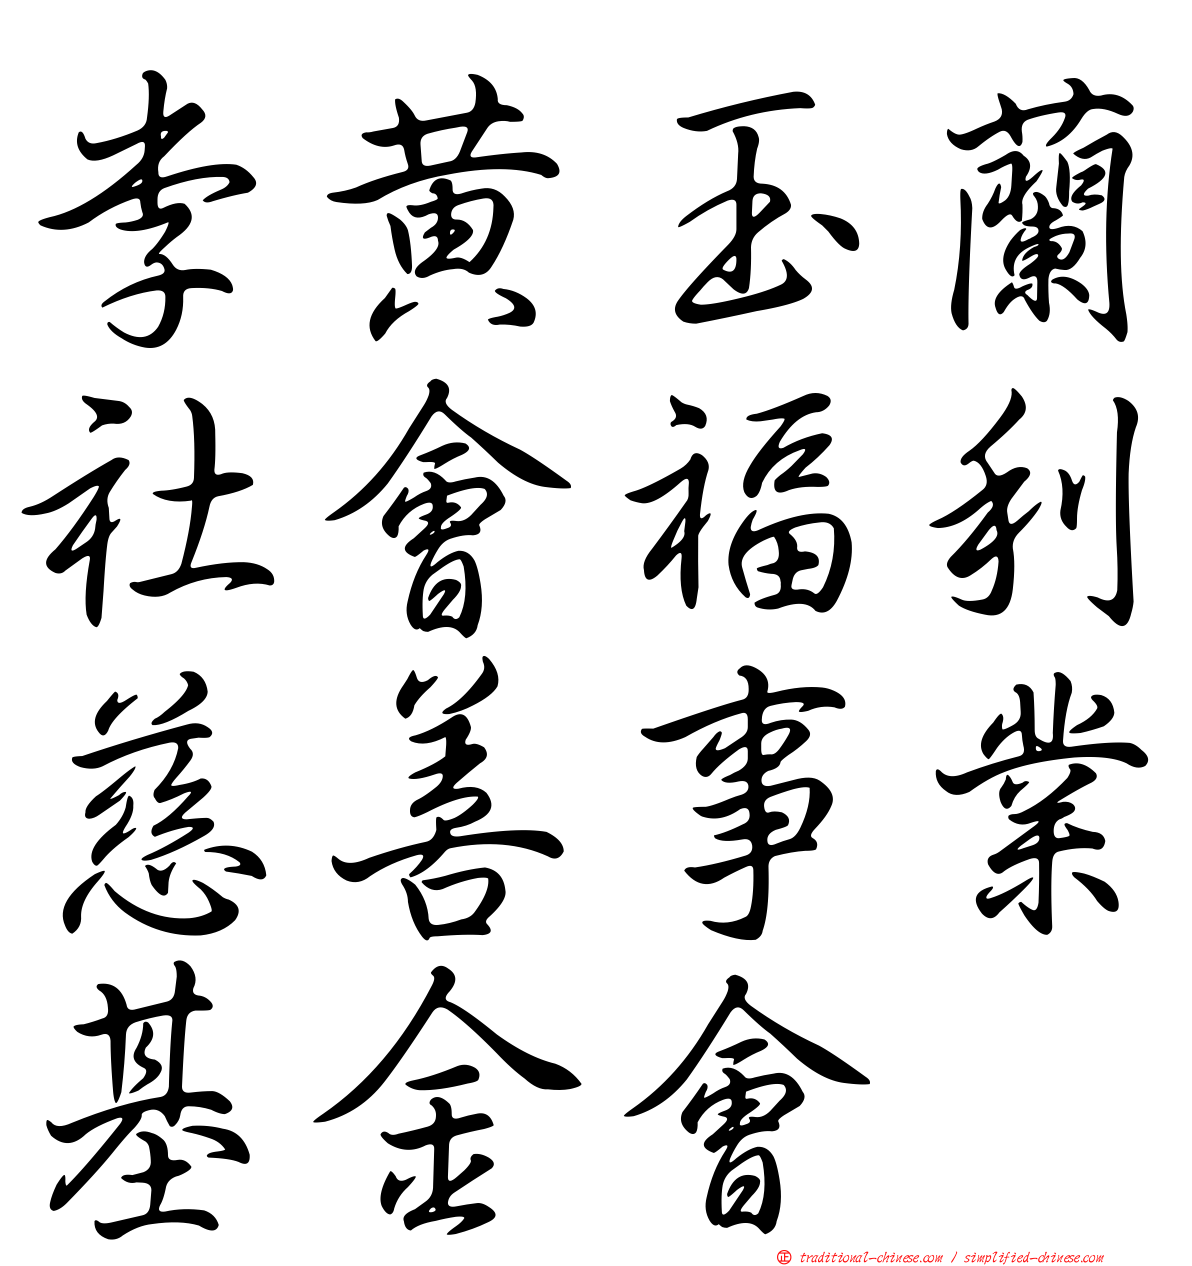 李黃玉蘭
社會福利
慈善事業
基金會
正 traditional-chinese.com / simplified-chinese.com